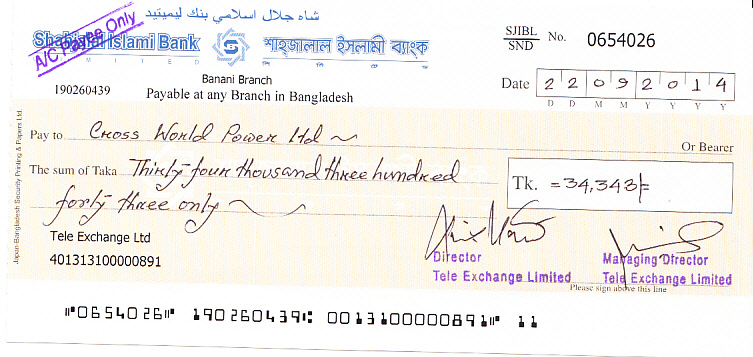 شاه جلال اسلامي بنك ليميتيد
A/C Payee Only
Shahjalal Islami Bank
শাহ্জালাল ইসলামী ব্যাংক
L I M I T E D
SJIBL
SND
No. 0654026
Banani Branch
190260439
Payable at any Branch in Bangladesh
Date 2 2 0 9 2 0 1 4
D D M M Y Y Y Y
Pay to Cross World Power Ltd
Or Bearer
The sum of Taka Thirty four thousand three hundred
forty three only
Tk. =34,343/=
Tele Exchange Ltd
401313100000891
Director
Tele Exchange Limited
Managing Director
Tele Exchange Limited
Please sign above this line
Japan-Bangladesh Security Printing & Papers Ltd
⑈0654026⑈ 190260439⑆ 0013100000891⑈ 11